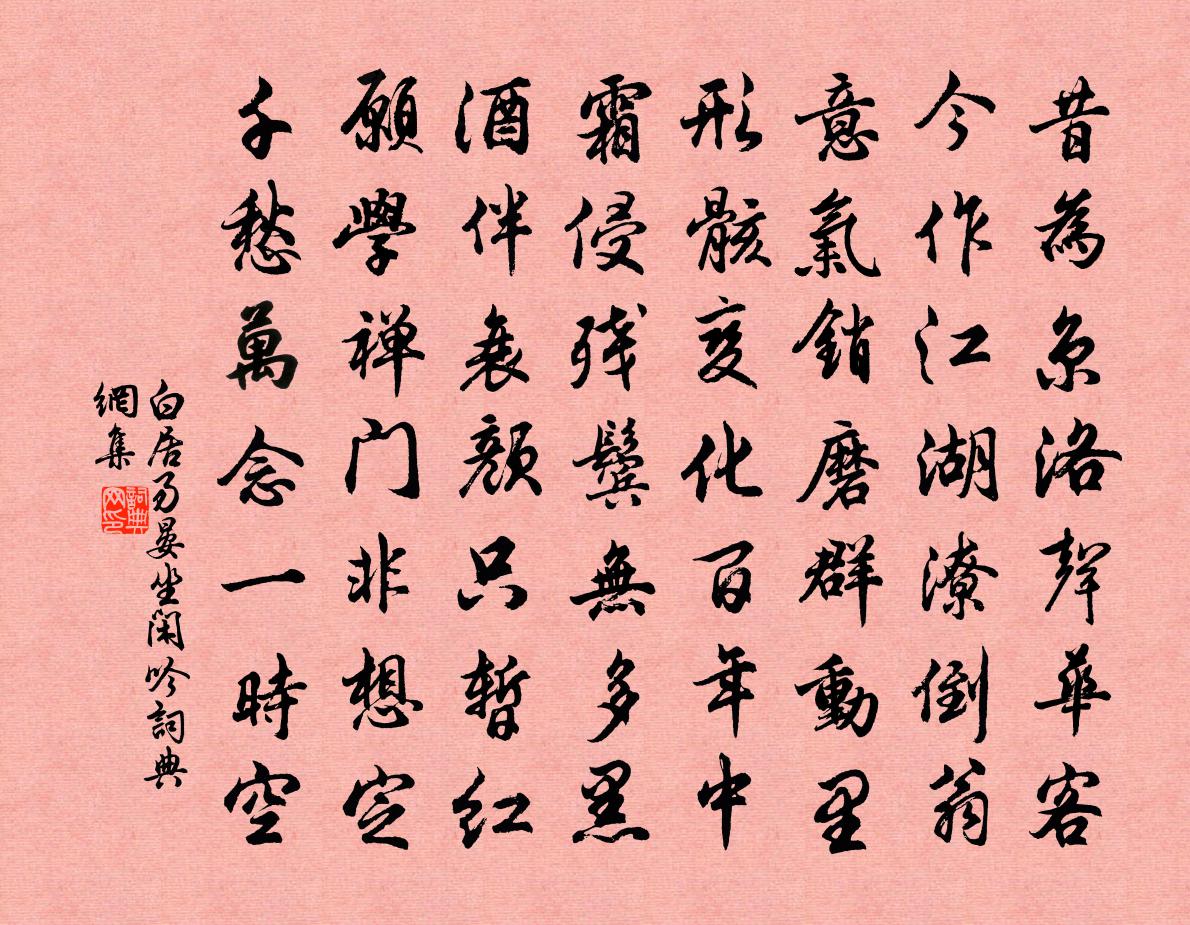 昔為京洛聲華客
今作江湖潦倒翁
意氣銷磨群動里
形骸變化百年中
霜侵殘鬢無多黑
酒伴衰顏只暫紅
願學禅门非想定
千愁萬念一時空
白居易晏坐閑吟詞典
網集
詞典
网印